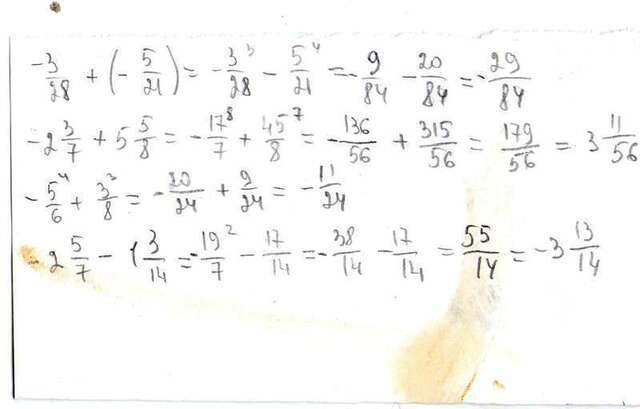 -3/28 + (-5/21) = -3³/28 - 5⁴/21 = -9/84 - 20/84 = -29/84
-2 3/7 + 5 5/8 = -17⁸/7 + 45⁷/8 = -136/56 + 315/56 = 179/56 = 3 11/56
-5⁴/6 + 3³/8 = -20/24 + 9/24 = -11/24
-2 5/7 - 1 3/14 = -19²/7 - 17/14 = -38/14 - 17/14 = 55/14 = -3 13/14